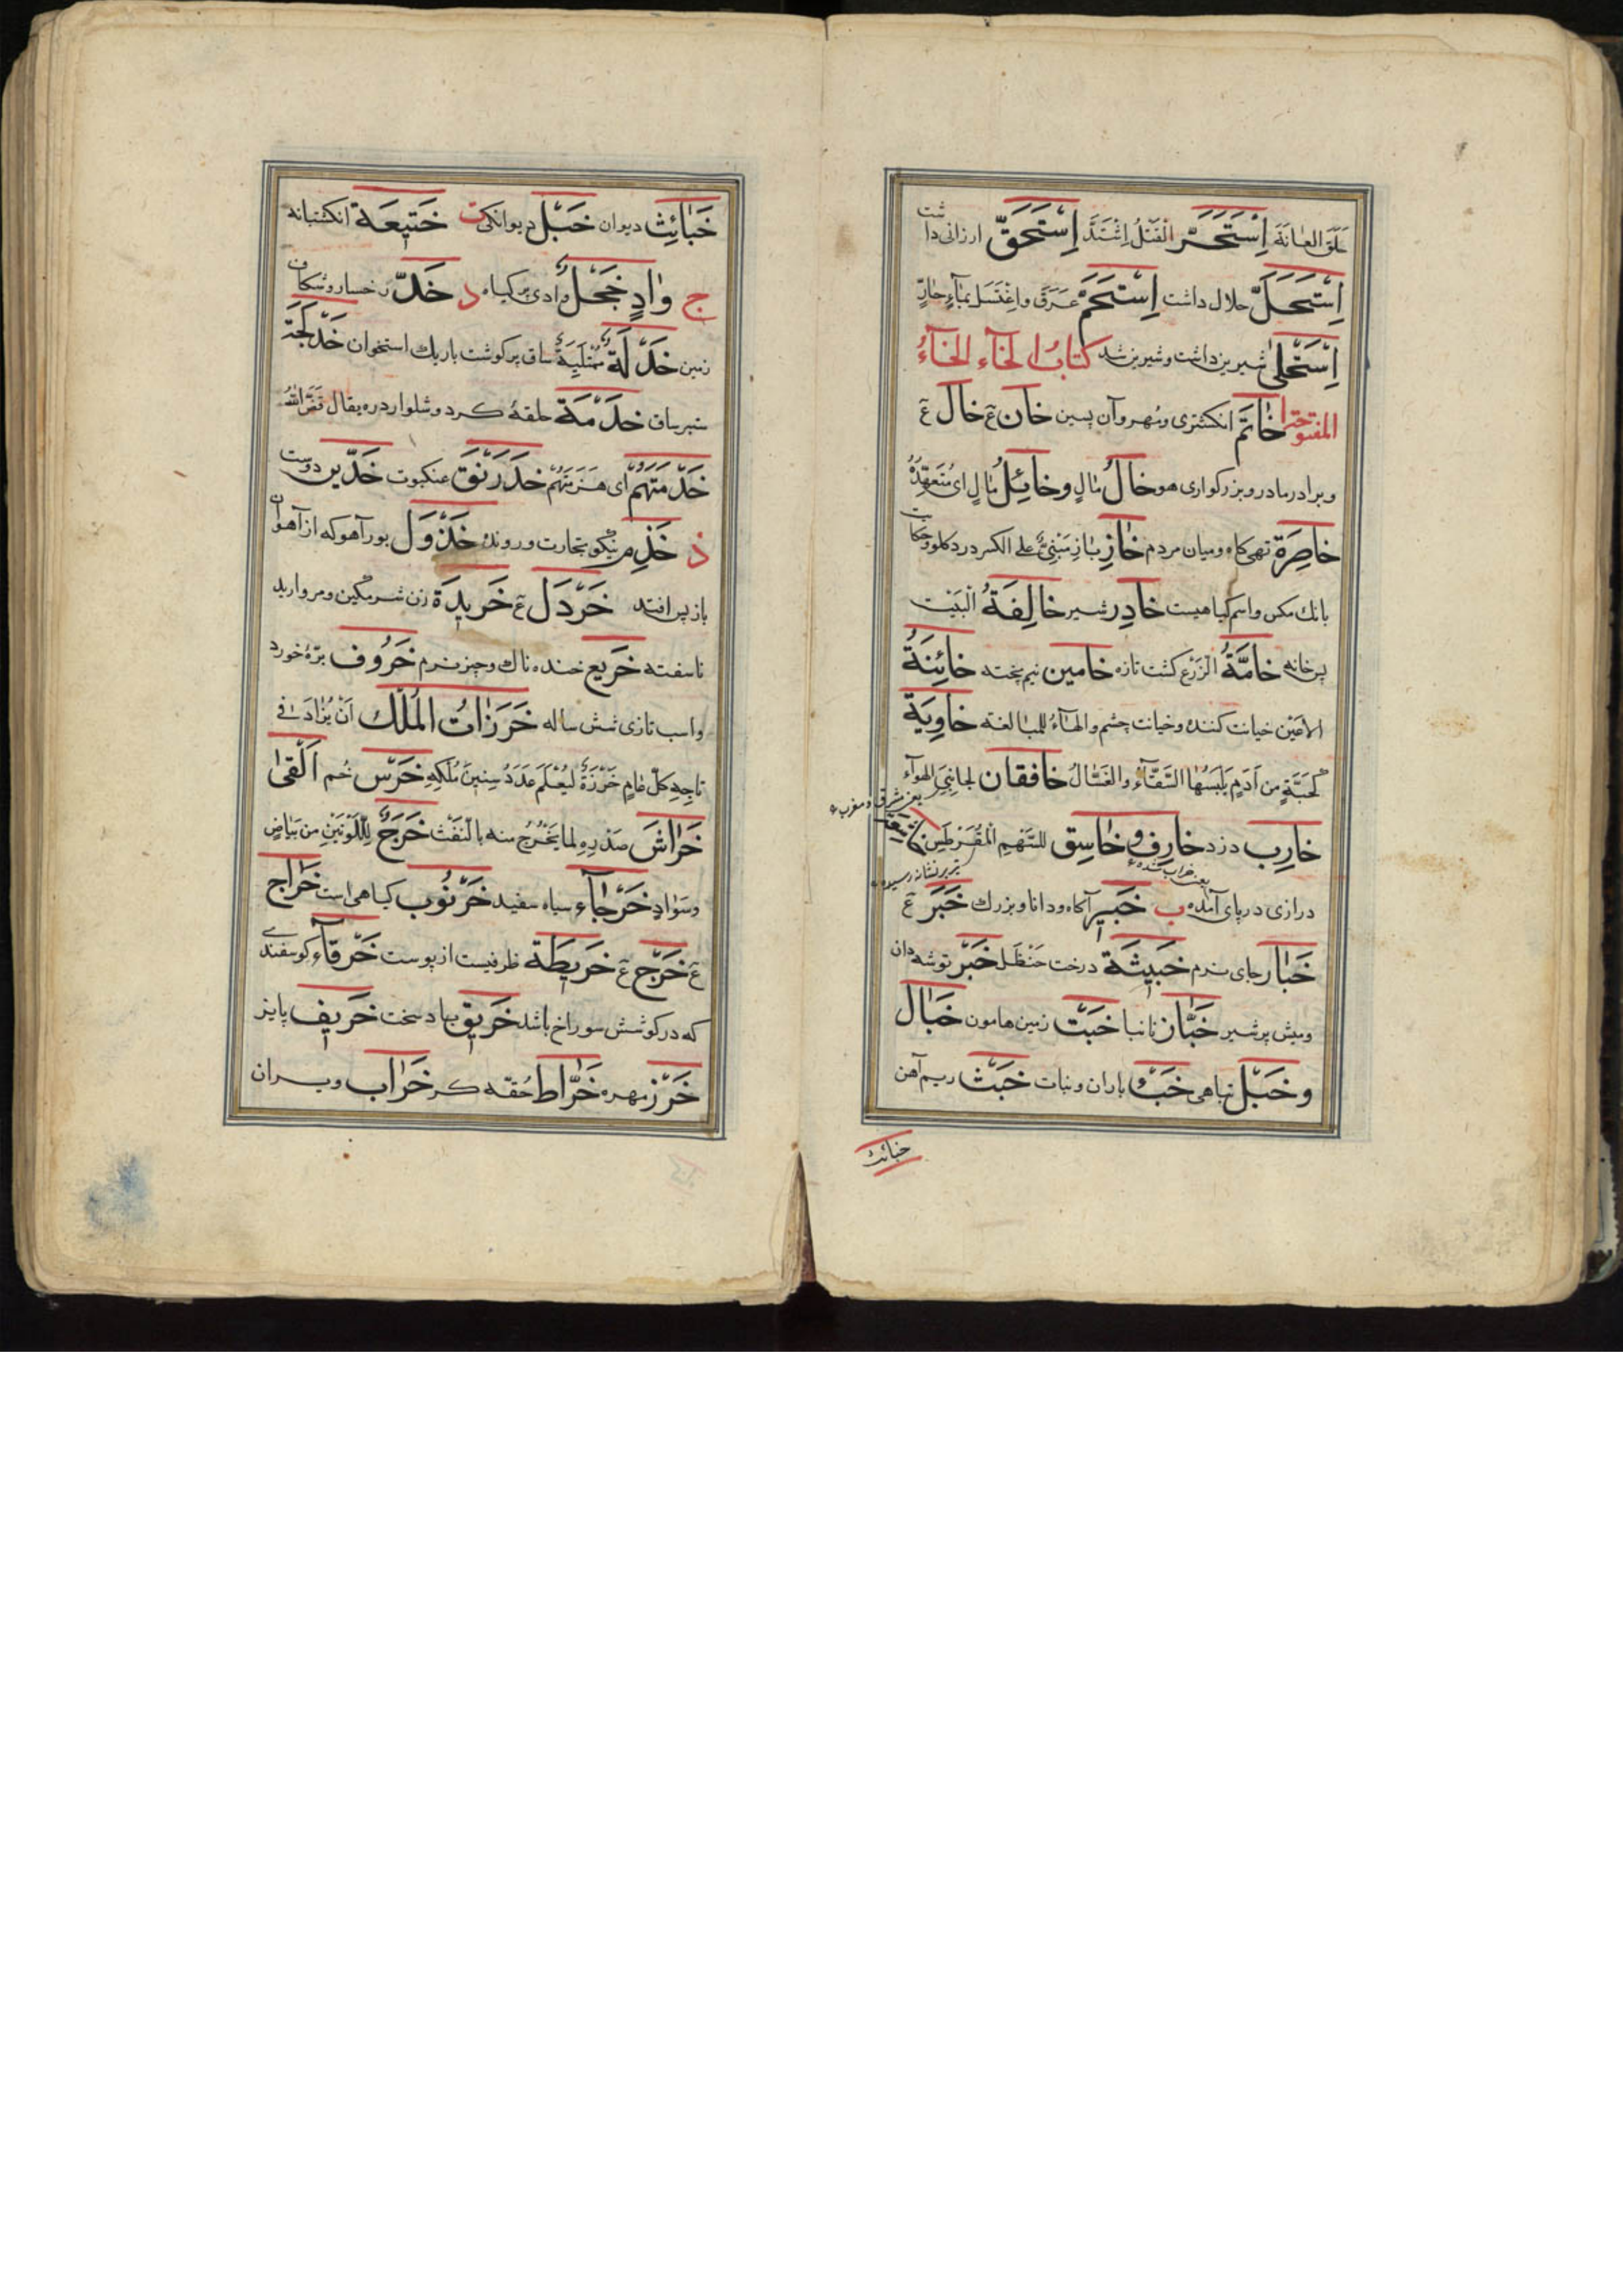 حَلَقَ العَانَةَ اِسْتَحَرَّ الْقَتْلُ اِشْتَدَّ اِسْتَحَقَّ ارزانی داشت
اِسْتَحَلَّ حلال داشت اِسْتَحَمَّ عَرَقَ واِغْتَسَلَ بمَاءٍ حارٍّ
اِسْتَحْلٰی شیرین داشت وشیرین شد کتابُ الخَآء الخَآءُ
المفتوحة خَاتَم انکشتری ومُهر وآن پسین خان عَ خال عَ
وبرادر مادر وبزرکواری هو خالُ مٰالٍ وخآئِلُ مٰالٍ ای مُتَعَهِّدُهُ
خاصِرَة تهی کاه ومیان مردم خازِبٰازِ مَبْنِیٌّ علی الکسر درد کلو وحکایت
بانك مکس واسم کیاهیست خادِر شیر خالِفَةُ الْبَیْت
پس خانه خامَّةُ الزَرْع کشت تازه خامین نیم پخته خائِنَةُ
الاَعْیُن خیانت کننده وخیانت چشم والهآءُ للمبالغة خاوِیَة
کجُبَّةٍ من اَدَمٍ یَلْبَسُهٰا السَّقّآءُ والغَسّٰالُ خافقان لجانِبَیِ الهوآء
یعنی مشرق ومغرب
خارِب دزد خارِف وخاسِق للسَّهْمِ الْمُقَرْطِس
یعنی خراب شده
تیر بر نشانه رسیده
درازی در پای آمده ب خَبیر آکاه ودانا وبزرك خَبَر عَ
خَبٰار جای نرم خَبیثَة درخت حَنْظَل خَبْر توشه دان
ومیش پر شیر خَبّٰاز نانبا خَبْت زمین هامون خَبٰال
وخَبْل تباهی خَبْء باران ونبات خَبَث ریم آهن
خبائث
خَبٰائِث دیوان خَبْل دیوانکی ت خَتیعَة انکشتبانه
ج وٰادٍ خَجْلٌ وادی پر کیاه د خَدّ رخسار وشکاف
زمین خَدْلَةٌ مُمْتَلِیَةٌ ساق پر کوشت باریك استخوان خَدَلَّجَة
ستبر ساق خَدَمَة حلقۀ کرد وشلوار دره یقال فَضَّ اللّٰهُ
خَدَمَتَهُمْ ای هَزَمَتَهُمْ خَدَرْنَق عنکبوت خَدین دوست
ذ خَذِم نیکو بتجارت ورونده خَذول بور آهو که از آهوان
باز پس افتد خَرْدَل عَ خَریدَة زن شرمکین ومروارید
ناسفته خَریع خنده ناك وچیز نرم خَرُوف برّۀ خورد
واسب تازی شش ساله خَرَزٰاتُ الْمُلْك اَنْ یُزٰادَ فی
تاجِهِ کلّ عٰامٍ خَرْزَةٌ لیُعْلَمَ عَدَدُ سِنینَ مُلْکِهِ خَرْس خُم اَلْقٰی
خَرٰاشَ صَدْرِهِ لما یَخْرُجُ منه بالنَفْث خَرَجٌ لِلّلَوْنَیْنِ من بَیٰاضٍ
وسَوٰادٍ خَرْجٰآء سیاه سفید خَرْنُوب کیاهی است خَرٰاج
عَ خَرْج عَ خَریطَة ظرفیست از پوست خَرْقآء کوسفندی
که در کوشش سوراخ باشد خَریق باد سخت خَریف پایز
خَرَز مهره خَرّٰاط حُقّه کر خَرٰاب ویران